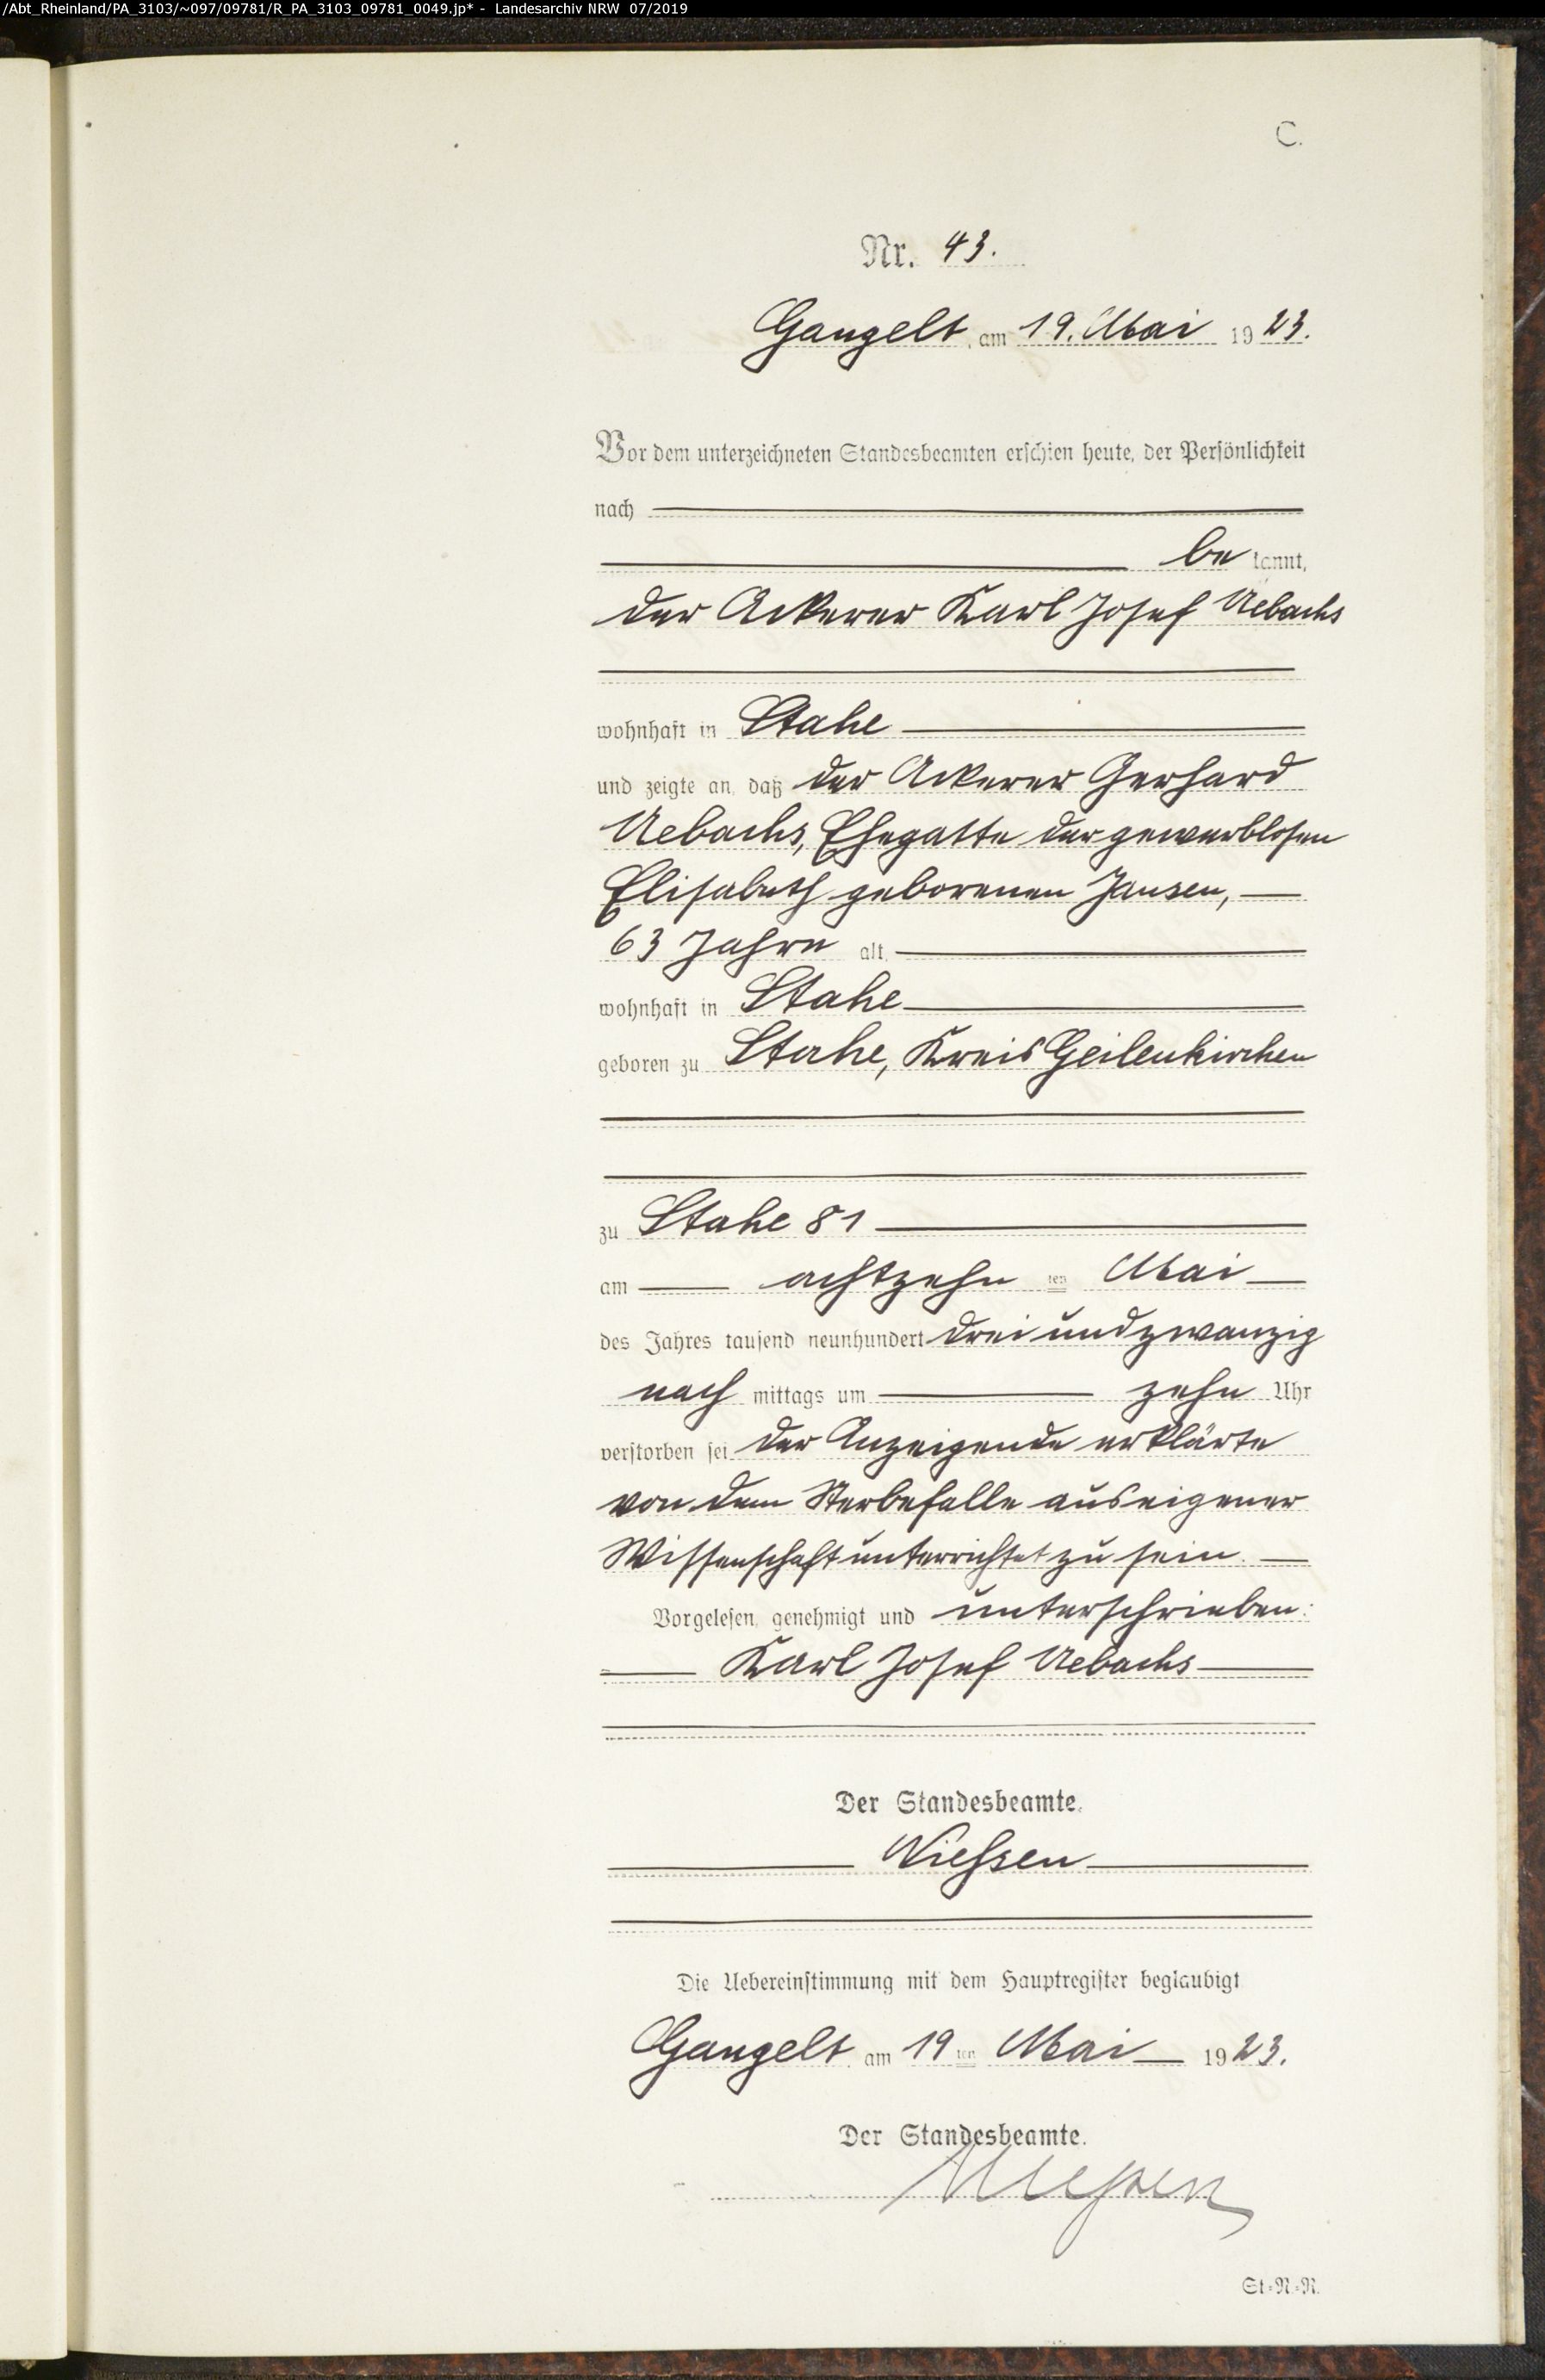 /Abt_Rheinland/PA_3103/~097/09781/R_PA_3103_09781_0049.jp* - Landesarchiv NRW 07/2019
C.
Nr. 43.
Gangelt, am 19. Mai 1923.
Vor dem unterzeichneten Standesbeamten erschien heute, der Persönlichkeit
nach
bekannt,
der Ackerer Karl Josef Uebachs
wohnhaft in Stahe
und zeigte an, daß der Ackerer Gerhard
Uebachs, Ehegatte der gewerblosen
Elisabeth geborenen Jansen,
63 Jahre alt,
wohnhaft in Stahe
geboren zu Stahe, Kreis Geilenkirchen
zu Stahe 81
am achtzehnten Mai
des Jahres tausend neunhundert drei und zwanzig
nachmittags um zehn Uhr
verstorben sei der Anzeigende erklärte
von dem Sterbefalle aus eigener
Wissenschaft unterrichtet zu sein.
Vorgelesen, genehmigt und unterschrieben:
Karl Josef Uebachs
Der Standesbeamte.
Nießen
Die Uebereinstimmung mit dem Hauptregister beglaubigt
Gangelt, am 19ten Mai 1923.
Der Standesbeamte.
Nießen
St=N=R.